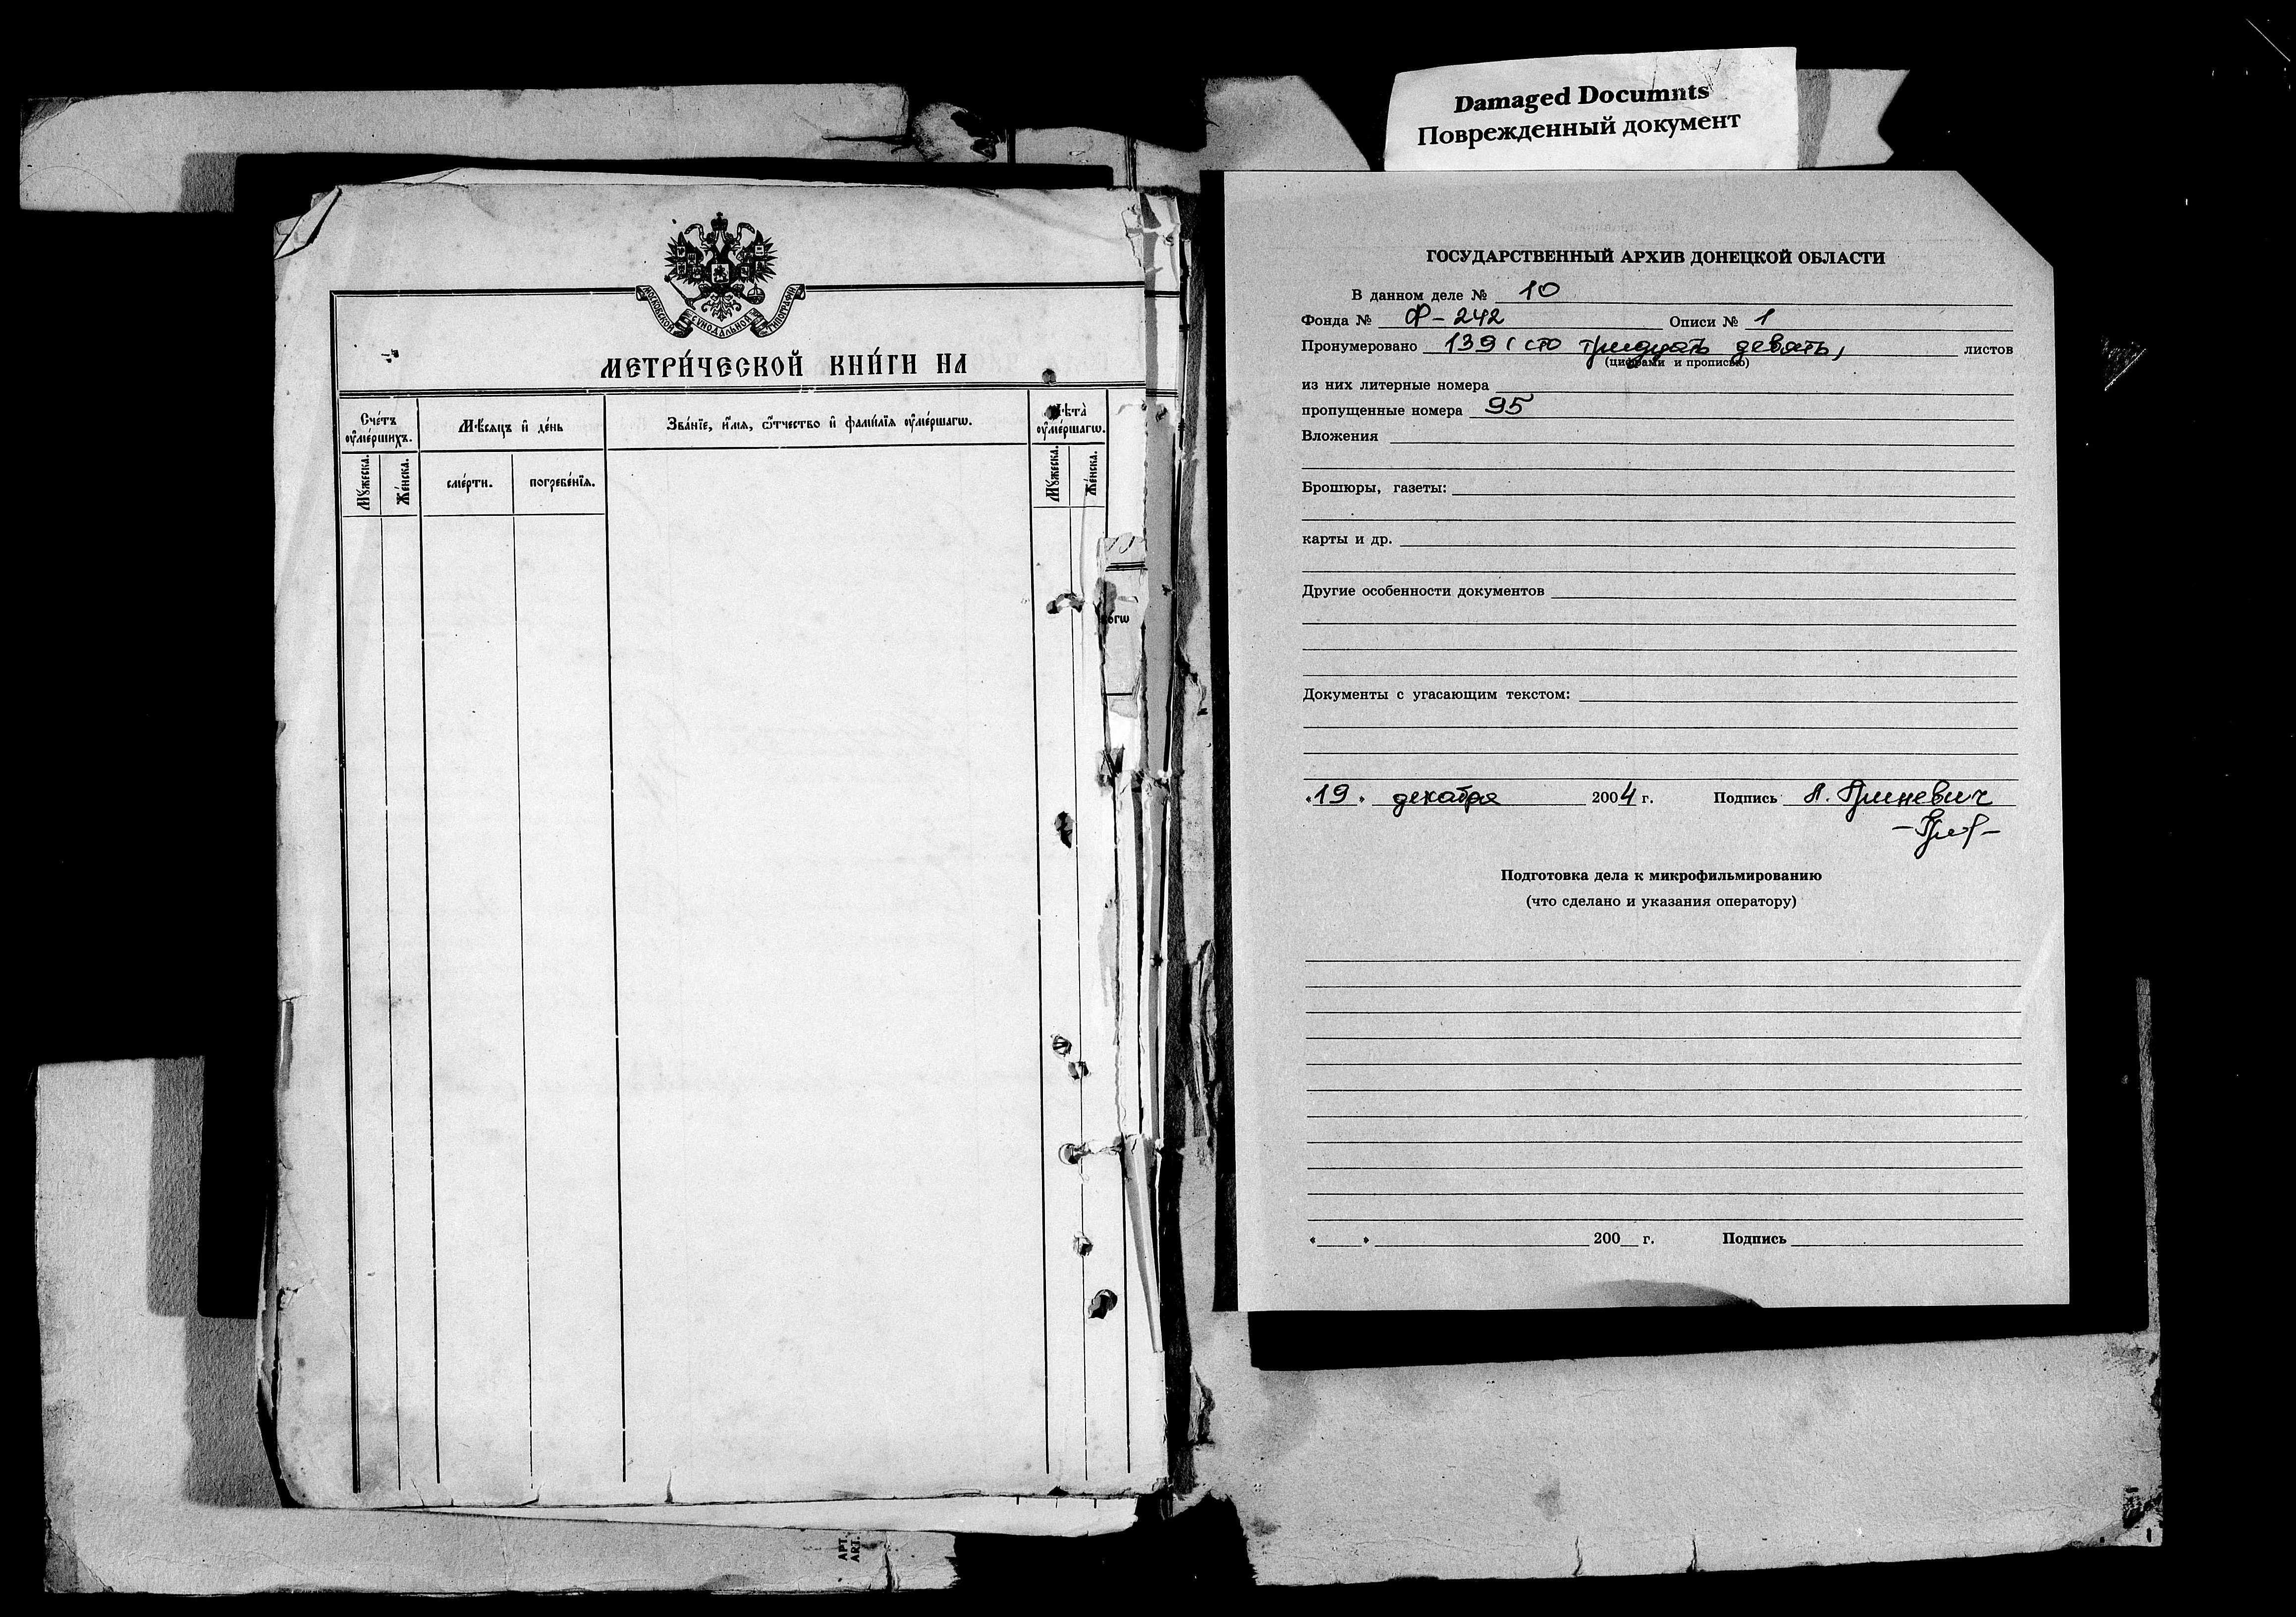 Damaged Documnts
Поврежденный документ
МОСКОВСКОЙ СѴНОДАЛЬНОЙ ТИПОГРАФІИ
МЕТРИ́ЧЕСКОЙ КНИ́ГИ НА
Сче́тъ ᲂу҆ме́ршихъ.
Мѣ́сяцъ и҆ де́нь
Зва́нїе, и҆́мя, ѻ҆́тчество и҆ фами́лїя ᲂу҆ме́ршагѡ.
Лѣта̀ ᲂу҆ме́ршагѡ.
Мꙋ́жеска.
Же́нска.
сме́рти.
погребе́нїя.
Мꙋ́жеска.
Же́нска.
ГОСУДАРСТВЕННЫЙ АРХИВ ДОНЕЦКОЙ ОБЛАСТИ
В данном деле № 10
Фонда № Ф-242 Описи № 1
Пронумеровано 139 (сто тридцать девять) листов
(цифрами и прописью)
из них литерные номера
пропущенные номера 95
Вложения
Брошюры, газеты:
карты и др.
Другие особенности документов
Документы с угасающим текстом:
«19» декабря 2004 г. Подпись Л. Гриневич
Подготовка дела к микрофильмированию
(что сделано и указания оператору)
« » 200 г. Подпись
АРТ.
ART.